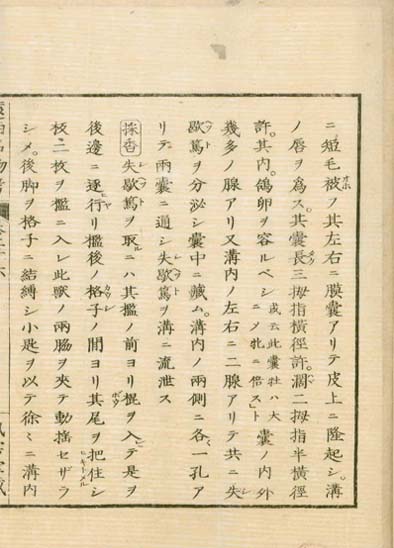 ニ短毛被フ其左右ニ膜嚢アリテ皮上ニ隆起シ。溝
ノ唇ヲ爲ス。其嚢長三拇指横徑許。濶二拇指半横徑
許。其内。鴿卵ヲ容ルベシ或云此嚢牡ハ大ニノ牝ニ倍スト嚢ノ内外
幾多ノ腺アリ又溝内ノ左右ニ二腺アリテ共ニ失
歇篤ヲ分泌シ嚢中ニ藏ム。溝内ノ兩側ニ各一孔ア
リテ兩嚢ニ通シ失歇篤ヲ溝ニ流泄ス
採香 失歇篤ヲ取ルニハ其檻ノ前ヨリ棍ヲ入テ是ヲ
後邊ニ逐行リ檻後ノ格子ノ間ヨリ其尾ヲ把住シ
板二枚ヲ檻ニ入レ此獸ノ兩脇ヲ夾テ動揺セザラ
シメ。後脚ヲ格子ニ結縛シ小匙ヲ以テ徐〻ニ溝内